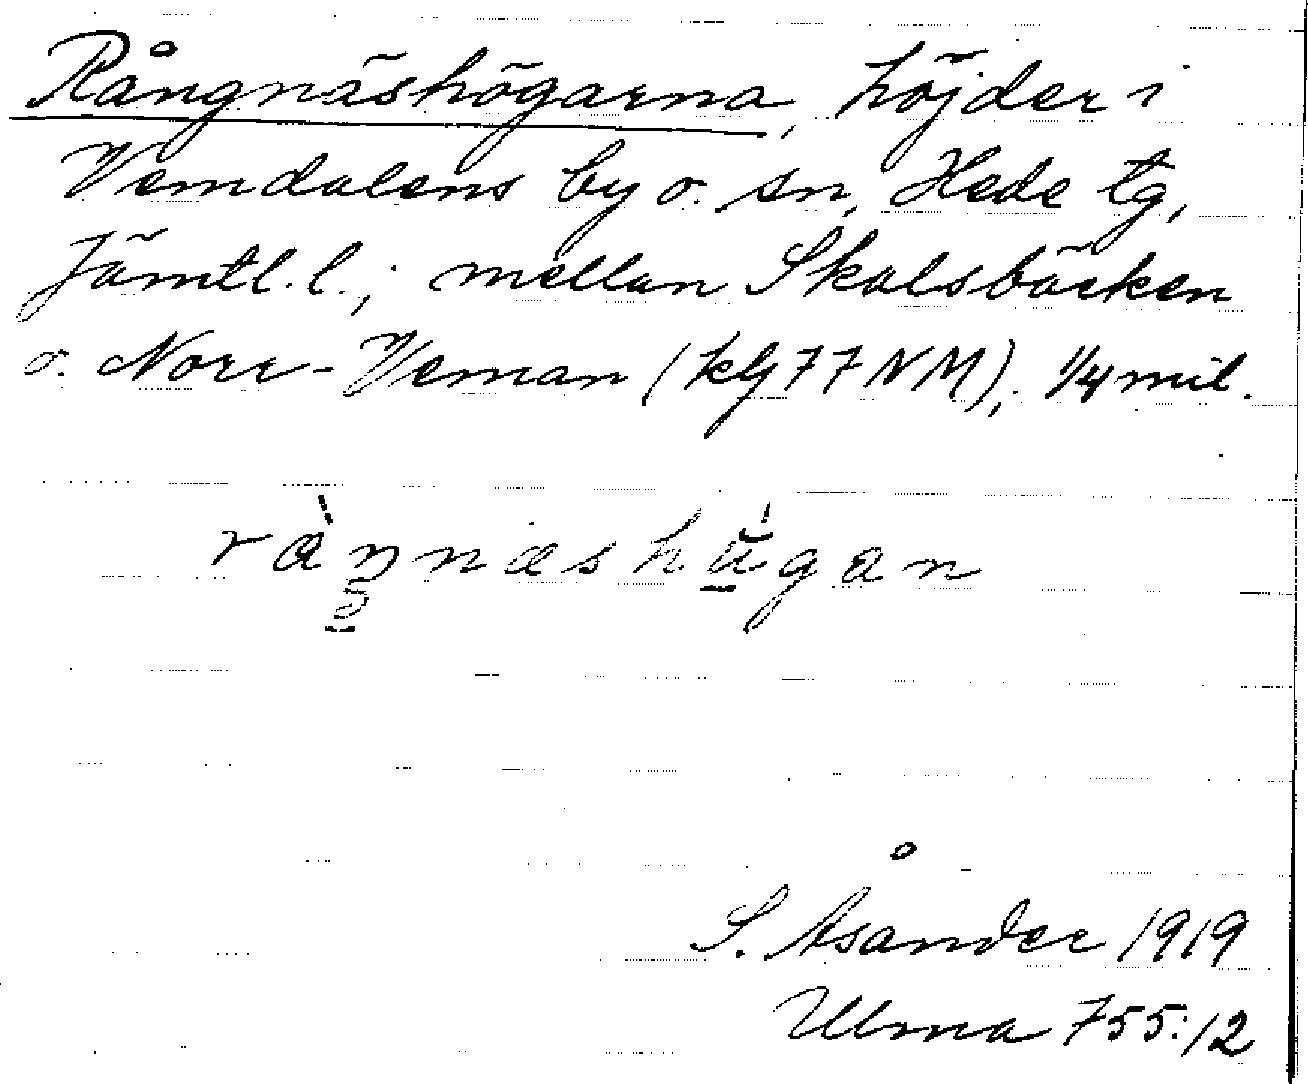 Rångnäshögarna, höjder i
Vemdalens by o. sn, Hede tg,
Jämtl. l.; mellan Skalsbäcken
o. Norr-Veman (kbl 77 NM), 1/4 mil.
S. Åsander 1919
Ulma 755:12